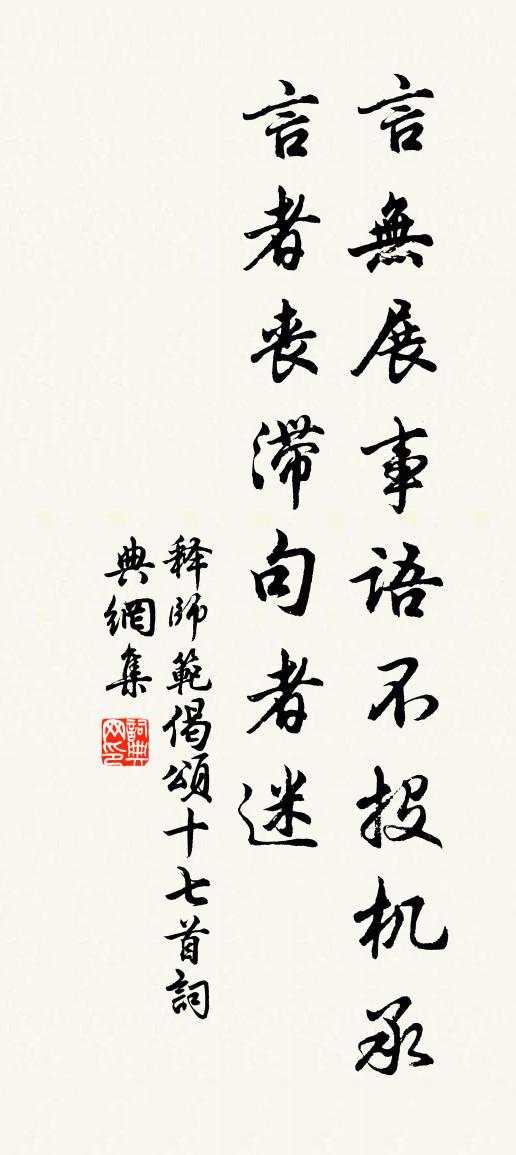 言無展事語不投机承
言者丧滞句者迷
释師範偈頌十七首詞
典網集
詞典网印